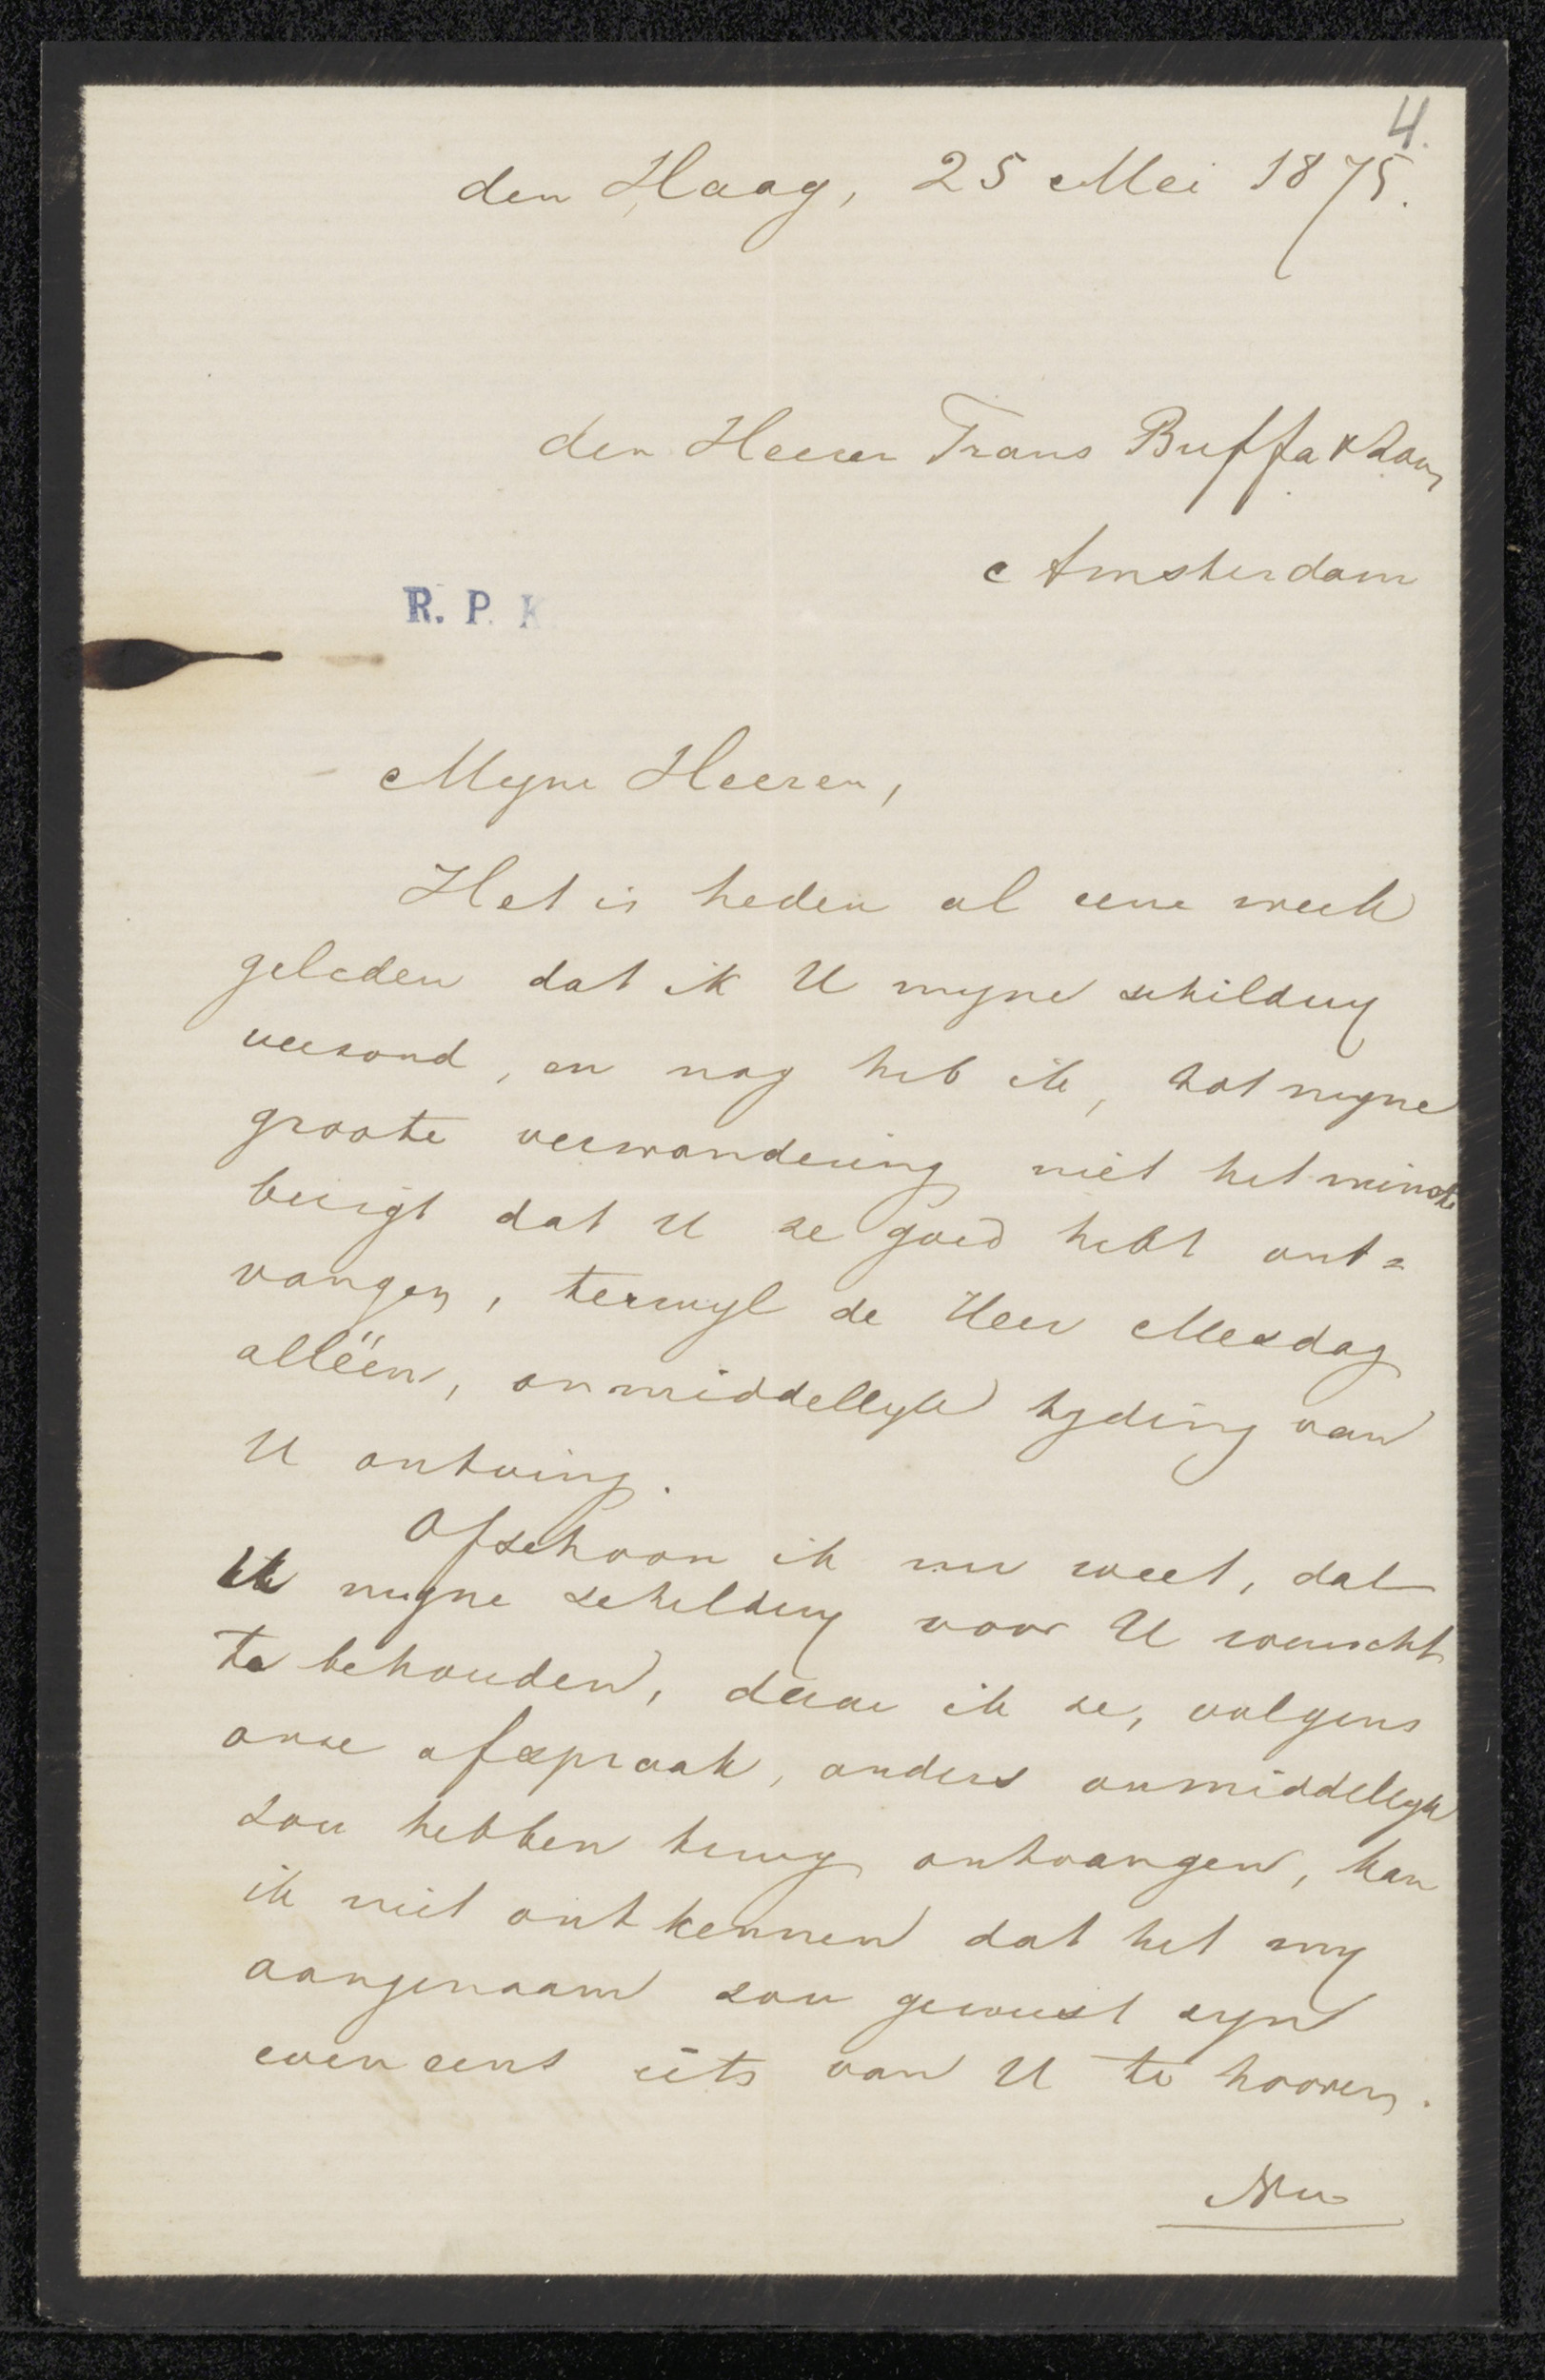 4.
den Haag, 25 Mei 1875.
den Heeren Frans Buffa & Zoon
Amsterdam
R. P. K.
Myne Heeren,
Het is heden al eene week
geleden dat ik U myne schildery
verzond, en nog heb ik, tot myne
groote verwondering niet het minste
berigt dat U ze goed hebt ont=
vangen, terwyl de Heer Mesdag
alléén, onmiddellyk tyding van
U ontving.
Ofschoon ik nu weet, dat
U myne schildery voor U wenscht
te behouden, daar ik ze, volgens
onze afspraak, anders onmiddellyk
zou hebben terug ontvangen, kan
ik niet ontkennen dat het my
aangenaam zou geweest zyn
even eens iets van U te hooren.
Nu